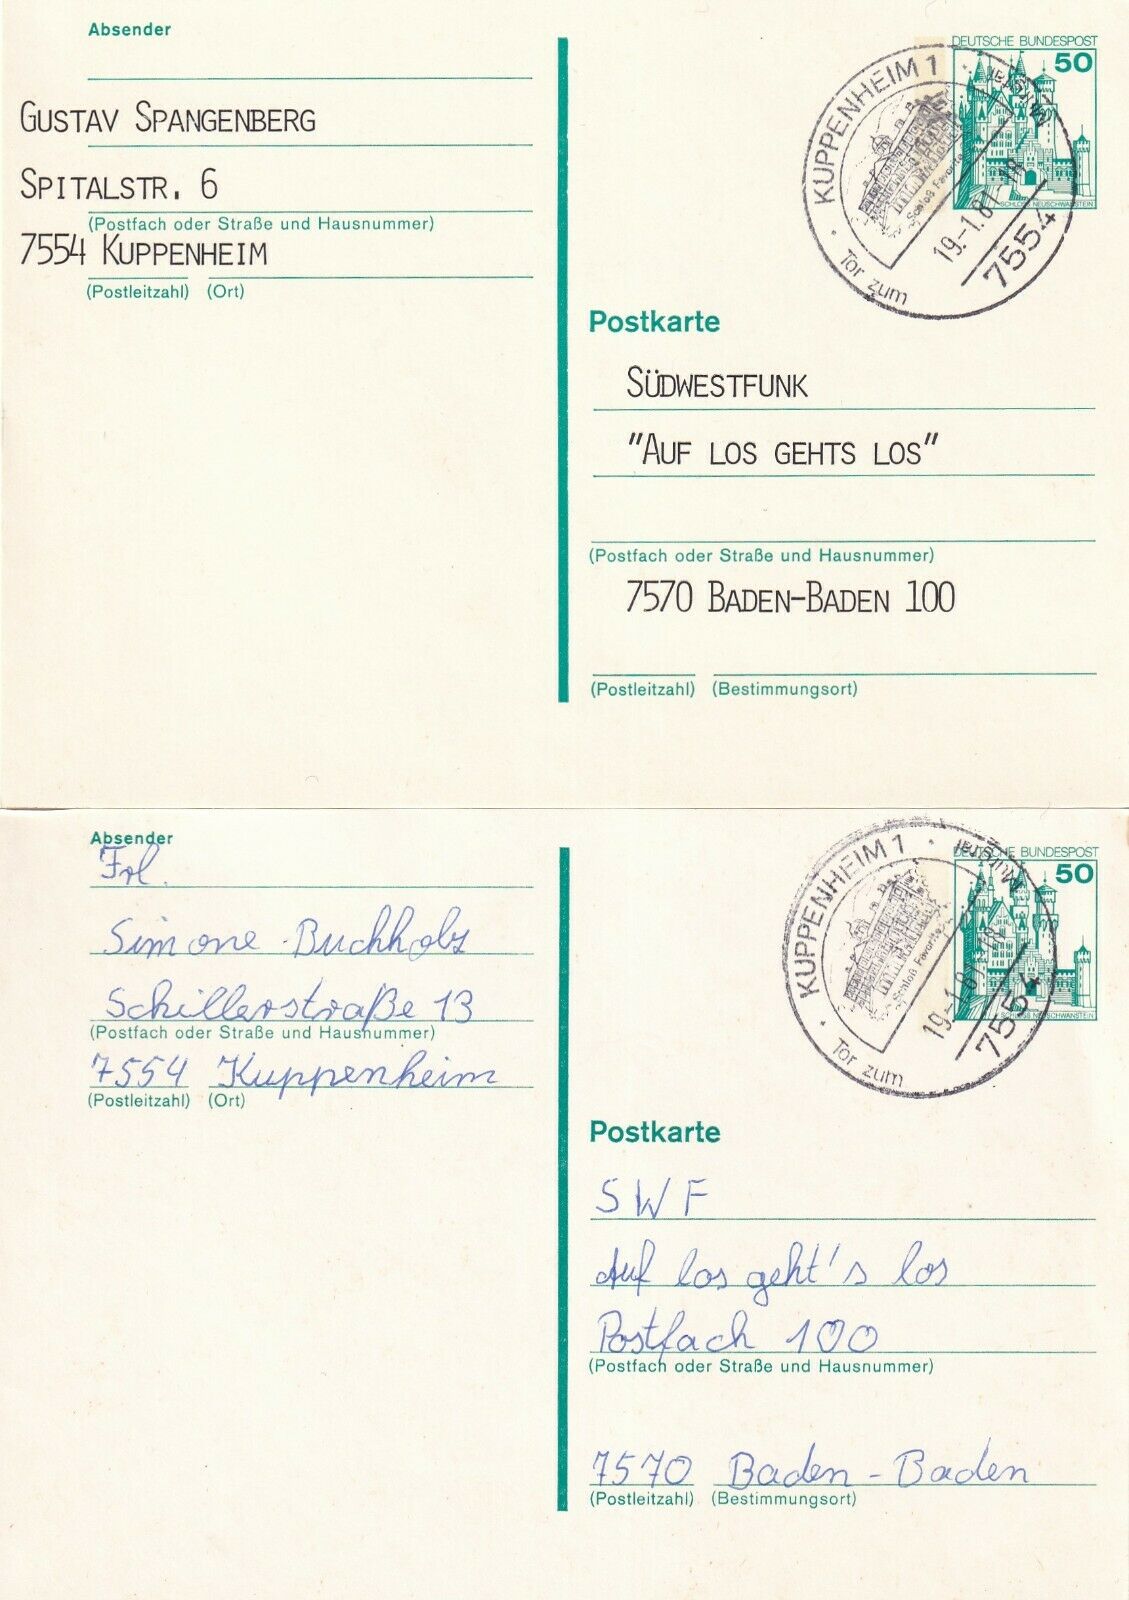 Absender
GUSTAV SPANGENBERG
SPITALSTR. 6
(Postfach oder Straße und Hausnummer)
7554 KUPPENHEIM
(Postleitzahl) (Ort)
DEUTSCHE BUNDESPOST
50
SCHLOSS NEUSCHWANSTEIN
KUPPENHEIM 1
Schloß Favorite
19.-1.81-18
7554
Tor zum
Murgtal
Postkarte
SÜDWESTFUNK
"AUF LOS GEHTS LOS"
(Postfach oder Straße und Hausnummer)
7570 BADEN-BADEN 100
(Postleitzahl) (Bestimmungsort)
Absender
Frl.
Simone Buchholz
Schillerstraße 13
(Postfach oder Straße und Hausnummer)
7554 Kuppenheim
(Postleitzahl) (Ort)
DEUTSCHE BUNDESPOST
50
SCHLOSS NEUSCHWANSTEIN
KUPPENHEIM 1
Schloß Favorite
19.-1.81-18
7554
Tor zum
Murgtal
Postkarte
SWF
Auf los geht's los
Postfach 100
(Postfach oder Straße und Hausnummer)
7570 Baden-Baden
(Postleitzahl) (Bestimmungsort)